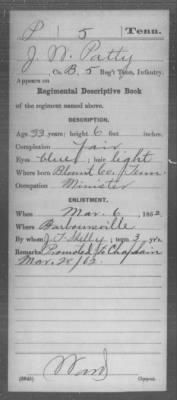 P 5 Tenn.
J. W. Patty
Co. B, 5 Reg't Tenn. Infantry.
Appears on
Regimental Descriptive Book
of the regiment named above.
DESCRIPTION.
Age 33 years; height 6 feet inches.
Complexion Fair
Eyes blue; hair light
Where born Blount Co, Tenn.
Occupation Minister
ENLISTMENT.
When Mar. 6, 1862.
Where Barboursville
By whom J. T. Shelly; term 3 yr's.
Remarks: Promoted to Chaplain
Mar. 28/62.
Ward
Copyist.